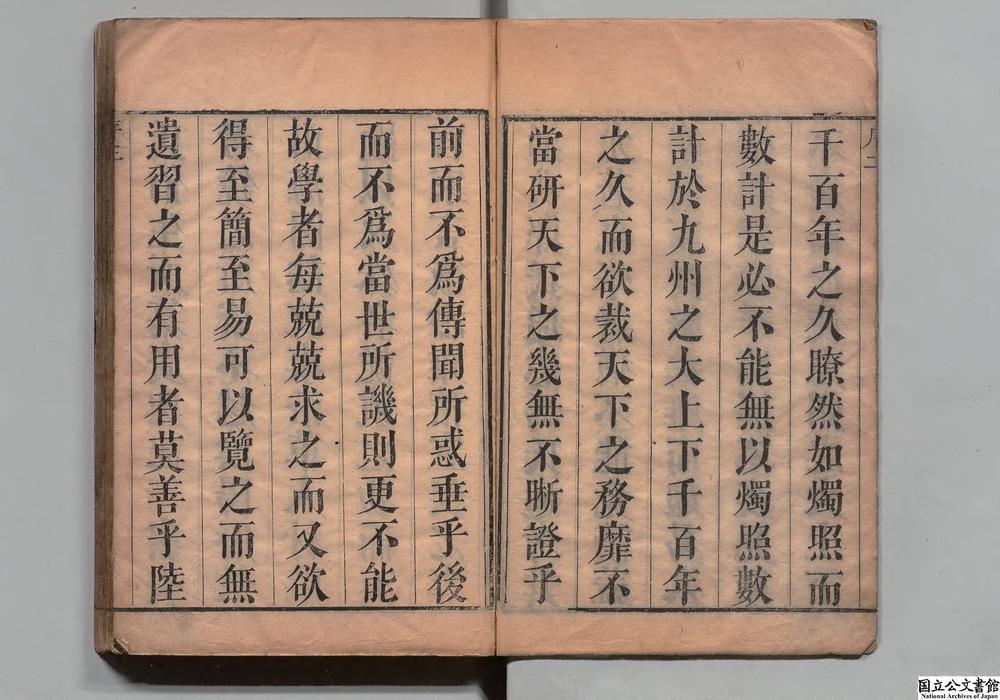 千百年之久瞭然如燭照而
數計是必不能無以燭照數
計於九州之大上下千百年
之久而欲裁天下之務靡不
當研天下之幾無不晰證乎
前而不爲傳聞所惑垂乎後
而不爲當世所譏則更不能
故學者每兢兢求之而又欲
得至簡至易可以覽之而無
遺習之而有用者莫善乎陸
国立公文書館
National Archives of Japan